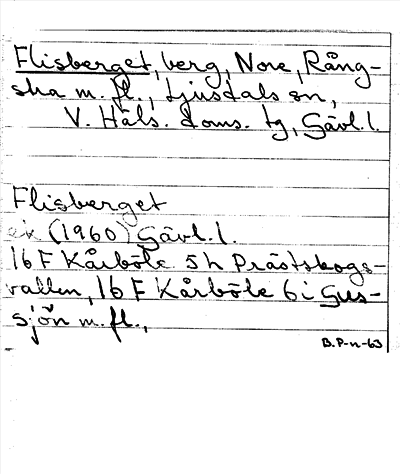 Flisberget, berg, Nore, Rång-
sta m. fl., Ljusdals sn,
V. Häls. doms. tg, Gävl. l.
Flisberget
ek (1960) Gävl. l.
16 F Kårböle 5 h Prästskogs-
vallen, 16 F Kårböle 6 i Gus-
sjön m. fl.,
B.P-n-63